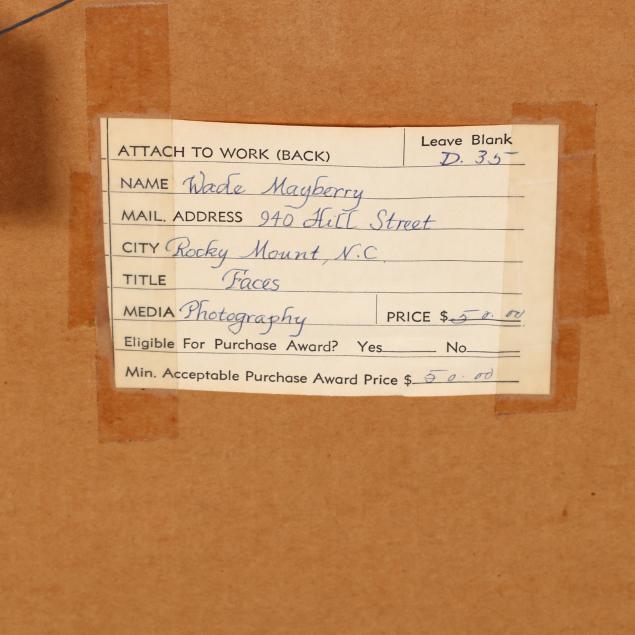 Leave Blank
ATTACH TO WORK (BACK) D. 35
NAME Wade Mayberry
MAIL. ADDRESS 940 Hill Street
CITY Rocky Mount, N.C.
TITLE Faces
MEDIA Photography PRICE $ 50.00
Eligible For Purchase Award? Yes No
Min. Acceptable Purchase Award Price $ 50.00